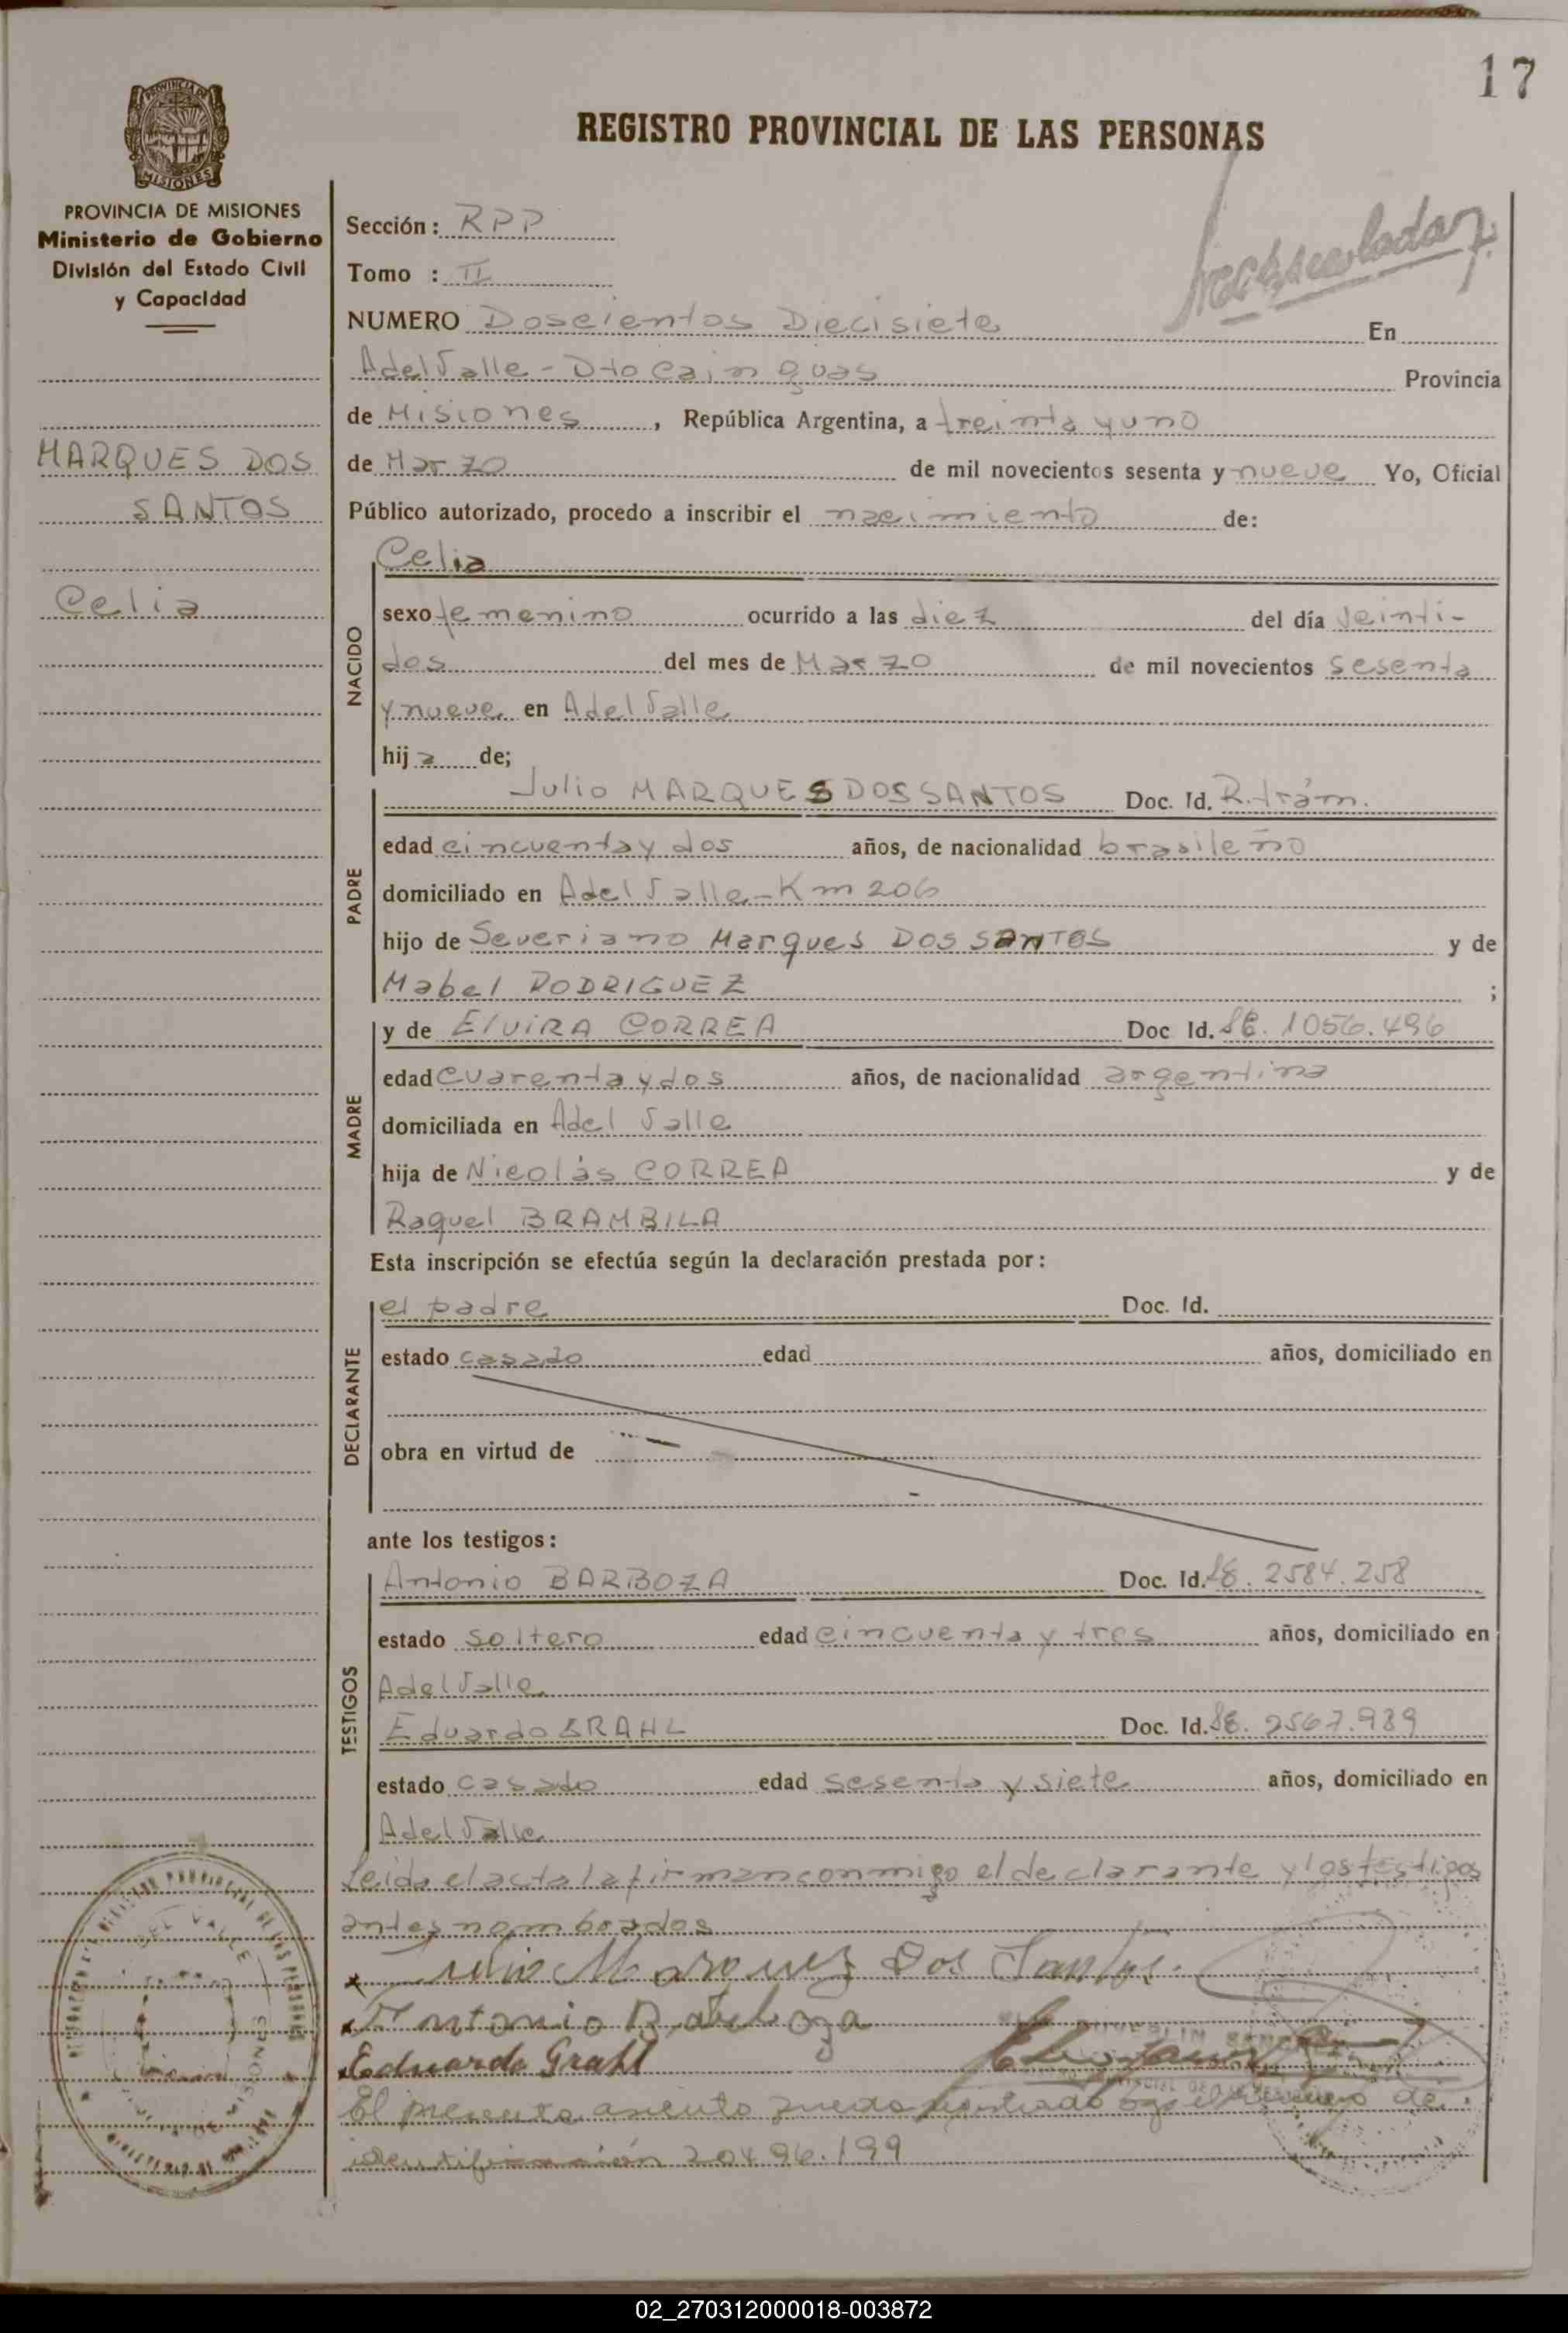 17
REGISTRO PROVINCIAL DE LAS PERSONAS
PROVINCIA DE MISIONES
Ministerio de Gobierno
División del Estado Civil
y Capacidad
MARQUES DOS
SANTOS
Celia
Sección: RPP
Tomo : II
NUMERO Doscientos Diecisiete En
Adel Valle - Dto Cainguas Provincia
de Misiones, República Argentina, a treinta y uno
de Marzo de mil novecientos sesenta y nueve Yo, Oficial
Público autorizado, procedo a inscribir el nacimiento de:
NACIDO
Celia
sexo femenino ocurrido a las diez del día veinti-
dos del mes de Marzo de mil novecientos sesenta
y nueve en Adel Valle
hija de;
PADRE
Julio MARQUES DOS SANTOS Doc. Id. R. trám.
edad cincuenta y dos años, de nacionalidad brasileño
domiciliado en Adel Valle - Km 206
hijo de Severiano Marques DOS SANTOS y de
Mabel RODRIGUEZ ;
MADRE
y de ElviRA CORREA Doc Id. 1056.496
edad cuarenta y dos años, de nacionalidad argentina
domiciliada en Adel Valle
hija de Nicolás CORREA y de
Raquel BRAMBILA
Esta inscripción se efectúa según la declaración prestada por:
DECLARANTE
el padre Doc. Id.
estado casado edad años, domiciliado en
obra en virtud de
ante los testigos:
TESTIGOS
Antonio BARBOZA Doc. Id. 2584.258
estado soltero edad cincuenta y tres años, domiciliado en
Adel Valle
Eduardo GRAHL Doc. Id. 2567.989
estado casado edad sesenta y siete años, domiciliado en
Adel Valle
Leida el acta la firman conmigo el declarante y los testigos
antes nombrados
Julio Marquez Dos Santos.
Antonio Barboza
Eduardo Grahl
El presente asiento queda registrado bajo el número de
identificación 20496.199
DEL VALLE
MISIONES
02_270312000018-003872